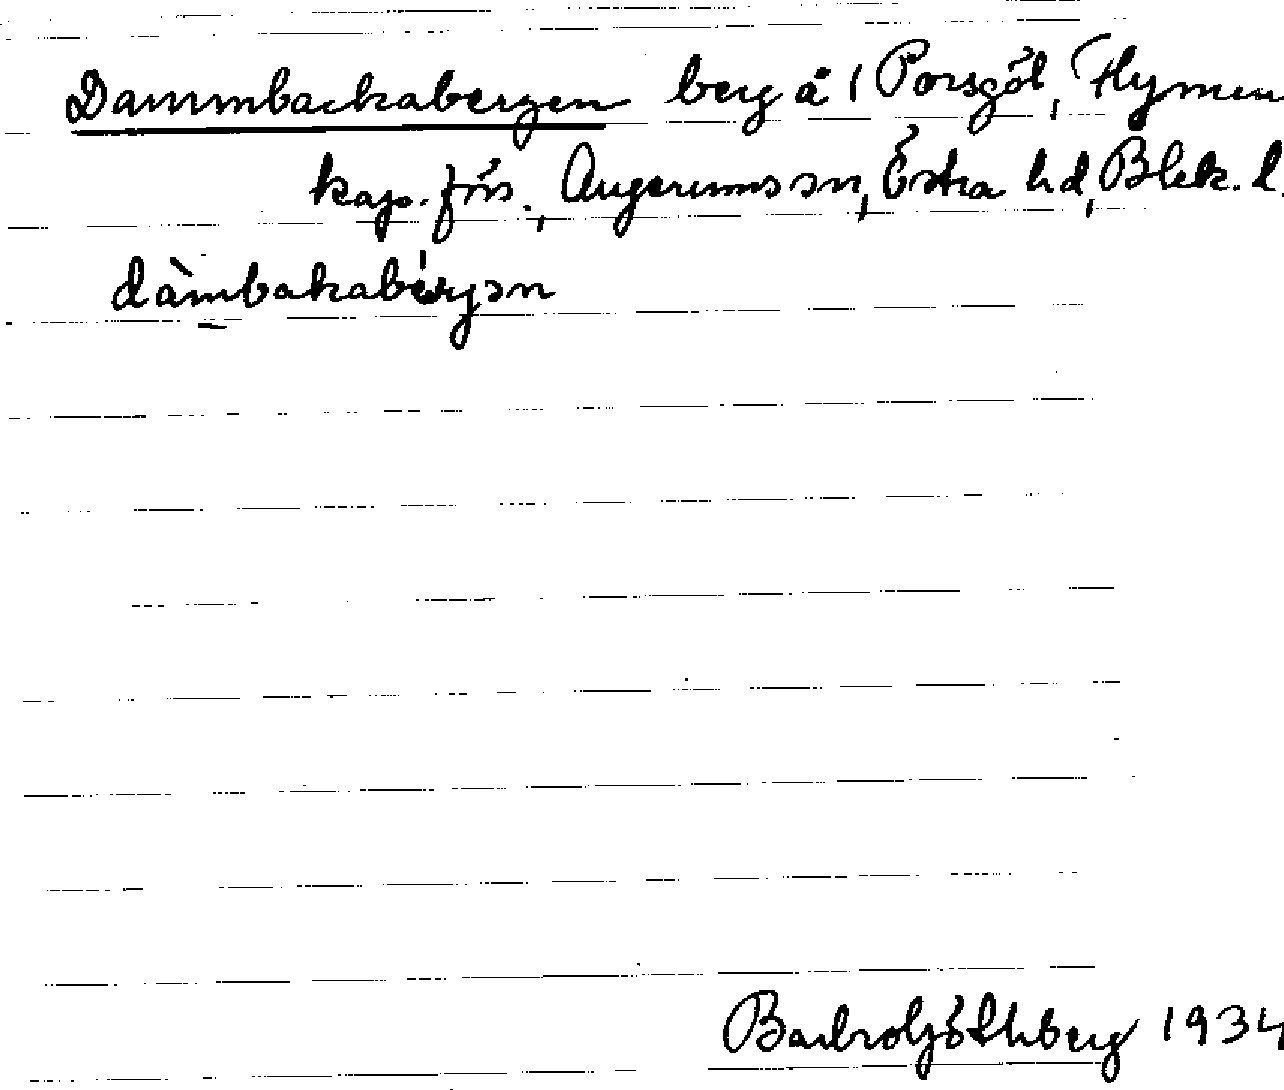 Dammbackabergen berg å 1 Porsgöl, Flymen
kap. förs., Augerums sn, Östra hd, Blek. l.
dàmbakabérjən
Barbro Göthberg 1934